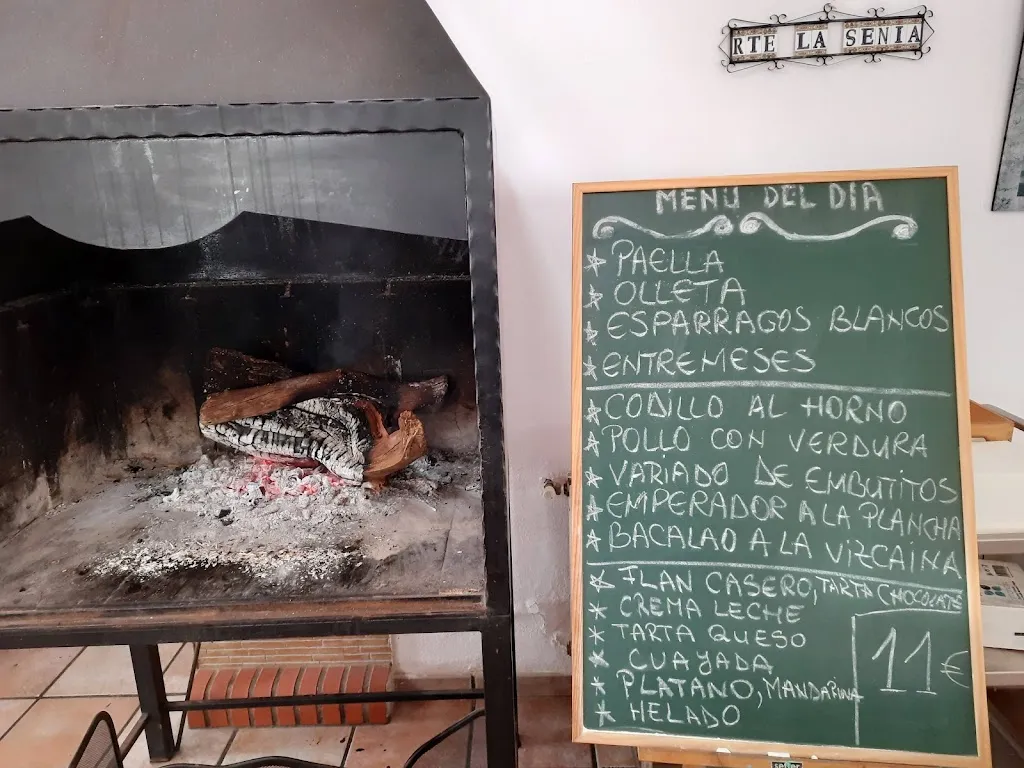 RTE LA SENIA
MENU DEL DIA
PAELLA
OLLETA
ESPARRAGOS BLANCOS
ENTREMESES
CODILLO AL HORNO
POLLO CON VERDURA
VARIADO DE EMBUTITOS
EMPERADOR A LA PLANCHA
BACALAO A LA VIZCAINA
FLAN CASERO, TARTA CHOCOLATE
CREMA LECHE
TARTA QUESO
CUAJADA
PLATANO, MANDARINA
HELADO
11 €